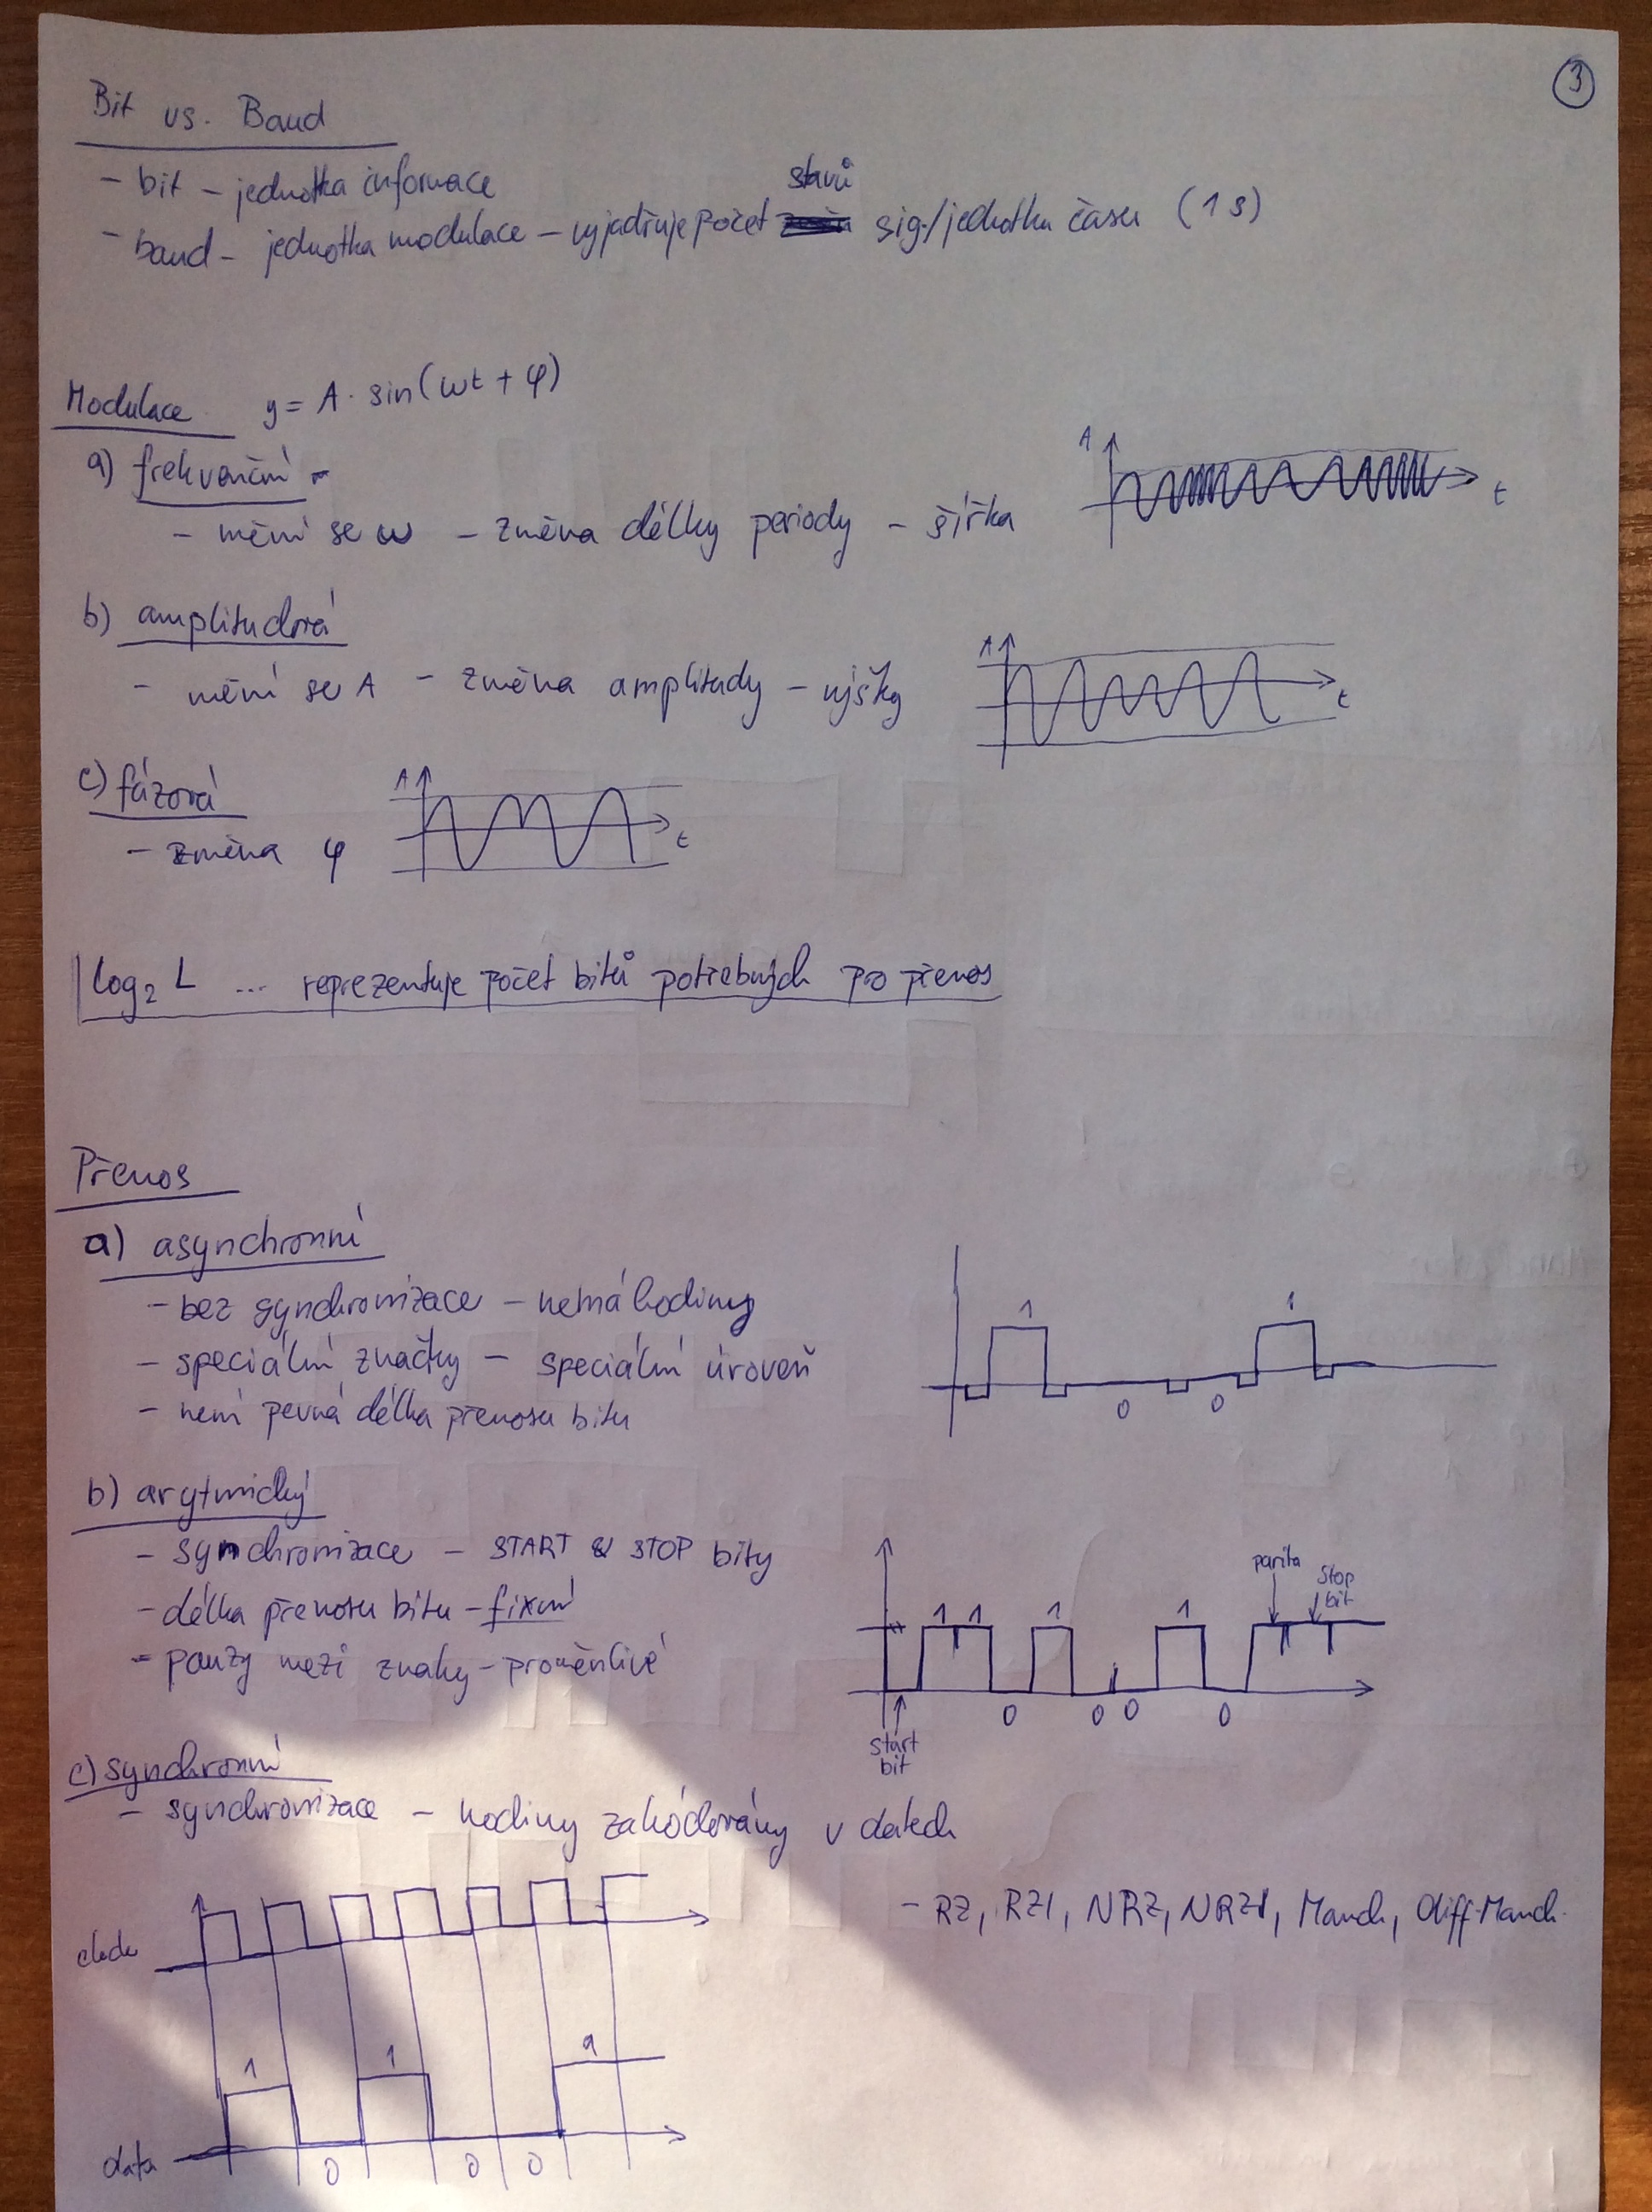 3
Bit vs. Baud
- bit - jednotka informace
- baud - jednotka modulace - vyjadřuje počet stavů sig/jednotku času (1 s)
Modulace y = A · sin(ωt + φ)
a) frekvenční
- mění se ω - změna délky periody - šířka
A
t
b) amplitudová
- mění se A - změna amplitudy - výšky
A
t
c) fázová
- změna φ
A
t
log₂ L ... reprezentuje počet bitů potřebných pro přenos
Přenos
a) asynchronní
- bez synchronizace - nemá hodiny
- speciální značky - speciální úroveň
- není pevná délka přenosu bitu
1 0 0 1
b) arytmický
- synchronizace - START a STOP bity
- délka přenosu bitu - fixní
- pauzy mezi znaky - proměnlivé
start bit
1 1 0 1 0 0 1 0
parita
stop bit
c) synchronní
- synchronizace - hodiny zakódovány v datech
- RZ, RZI, NRZ, NRZI, Manch, diff. Manch.
clock
data
1 0 1 0 0 1